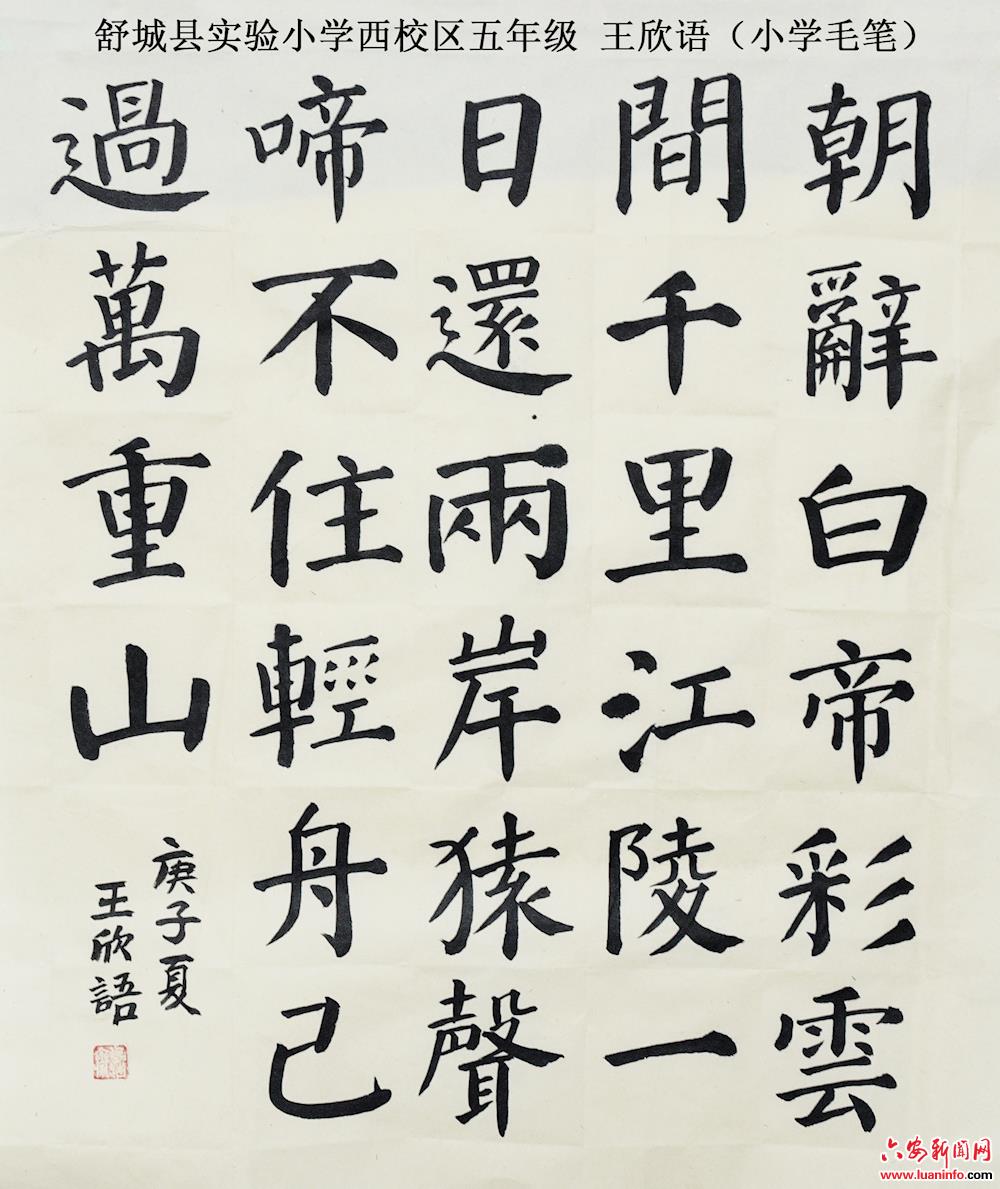 舒城县实验小学西校区五年级 王欣语（小学毛笔）
朝辭白帝彩雲
間千里江陵一
日還兩岸猿聲
啼不住輕舟已
過萬重山
庚子夏
王欣語
六安新闻网
www.luaninfo.com